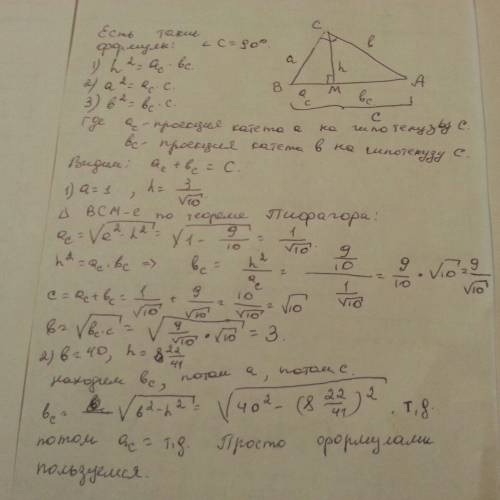 Есть такие
формулы: ∠C=90°.
1) h² = a_c · b_c.
2) a² = a_c · c.
3) b² = b_c · c.
C
a
b
h
B
M
A
a_c
b_c
c
где a_c - проекция катета a на гипотенузу c.
b_c - проекция катета b на гипотенузу c.
Видим: a_c + b_c = c.
1) a=1, h= 3/√10
Δ BCM-е по теореме Пифагора:
a_c = √(a²-h²) = √(1 - 9/10) = 1/√10.
h² = a_c · b_c => b_c = h²/a_c = (9/10)/(1/√10) = 9/10 · √10 = 9/√10
c = a_c + b_c = 1/√10 + 9/√10 = 10/√10 = √10
b = √(b_c · c) = √(9/√10 · √10) = 3.
2) b=40, h= 8 22/41
находим b_c, потом a, потом c.
b_c = √(b²-h²) = √(40² - (8 22/41)²) . т.д.
потом a_c = т.д. Просто формулами
пользуемся.